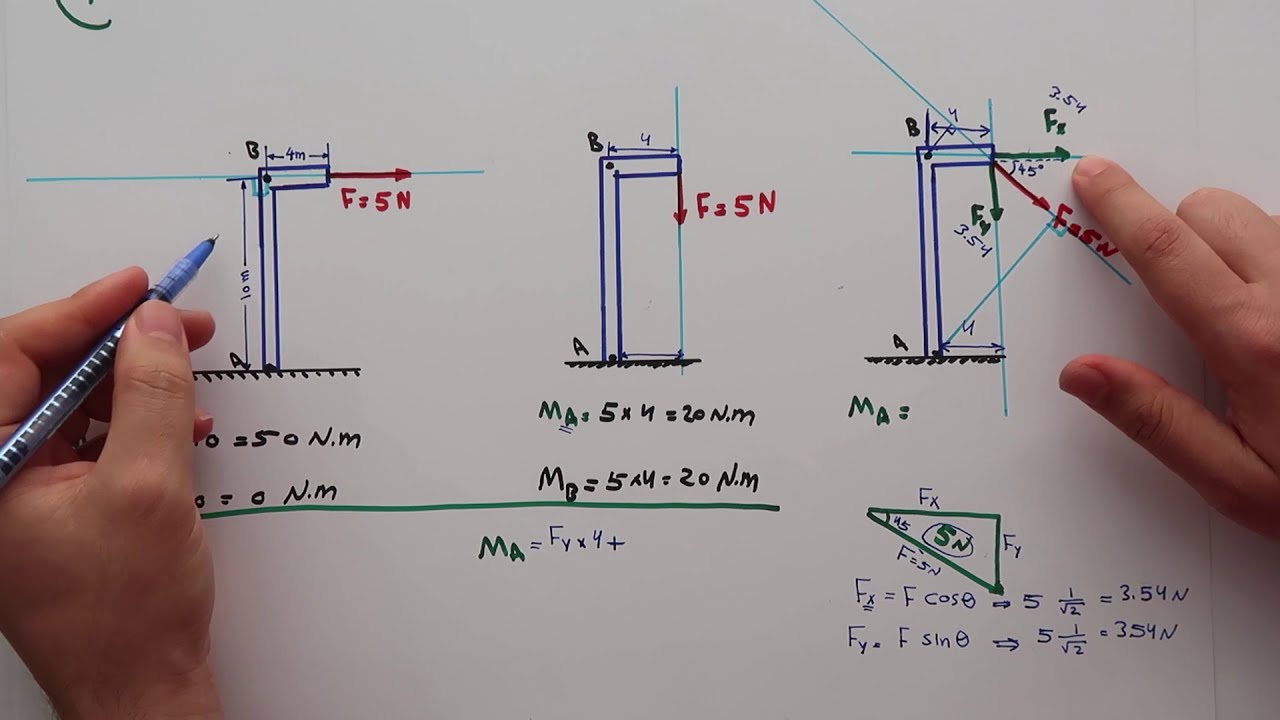 B
4m
F=5N
10m
A
0 = 50 N.m
0 = 0 N.m
B
4
F=5N
A
MA= 5 × 4 = 20 N.m
MB = 5×4 = 20 N.m
MA = Fy × 4 +
3.54
Fx
B
4
45°
Fy
3.54
F=5N
A
4
MA =
Fx
45
5N
Fy
F=5N
Fx = F cosθ ⇒ 5 1/√2 = 3.54 N
Fy = F sinθ ⇒ 5 1/√2 = 3.54 N